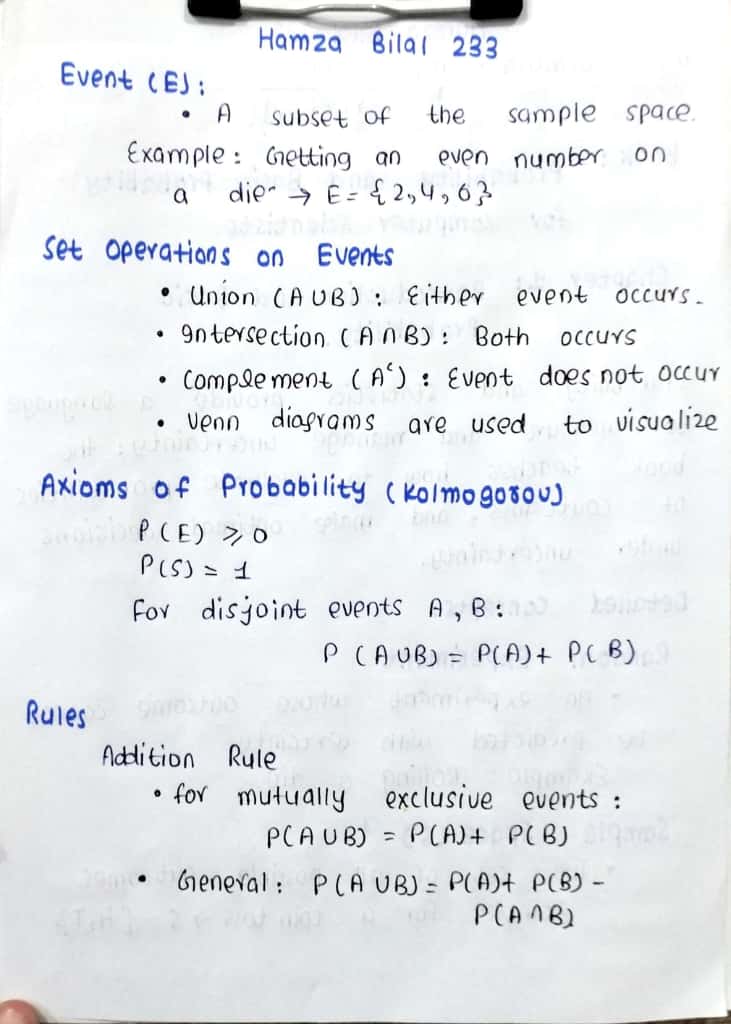 Hamza Bilal 233
Event (E):
• A subset of the sample space.
Example: Getting an even number on
a die → E = {2,4,6}
Set Operations on Events
• Union (A∪B): Either event occurs.
• Intersection (A∩B): Both occurs
• Complement (Aᶜ): Event does not occur
• Venn diagrams are used to visualize
Axioms of Probability (Kolmogorov)
P(E) ⩾ 0
P(S) = 1
For disjoint events A, B:
P(A∪B) = P(A) + P(B)
Rules
Addition Rule
• for mutually exclusive events:
P(A∪B) = P(A) + P(B)
• General: P(A∪B) = P(A) + P(B) –
P(A∩B)